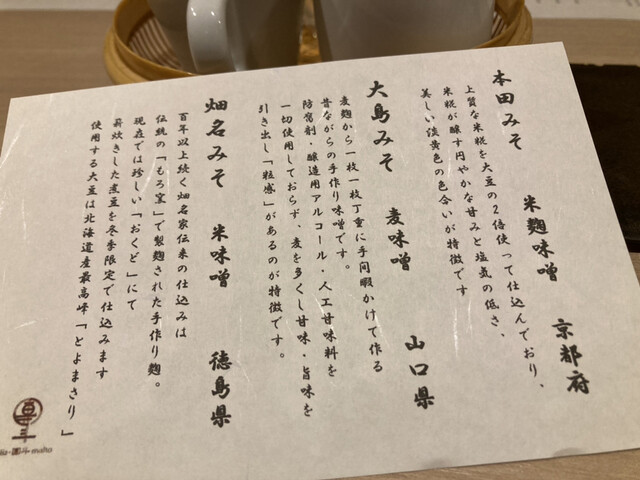 本田みそ　米麹味噌　京都府
上質な米糀を大豆の2倍使って仕込んでおり、
米糀が醸す円やかな甘みと塩気の低さ、
美しい淡黄色の色合いが特徴です
大島みそ　麦味噌　山口県
麦麹から一枚一枚丁重に手間暇かけて作る
昔ながらの手作り味噌です。
防腐剤・醸造用アルコール・人工甘味料を
一切使用しておらず、麦を多くし甘味・旨味を
引き出し「粒感」があるのが特徴です。
畑名みそ　米味噌　徳島県
百年以上続く畑名家伝来の仕込みは
伝統の「もろ室」で製麹された手作り麹。
現在では珍しい「おくど」にて
薪炊きした煮豆を冬季限定で仕込みます
使用する大豆は北海道産最高峰「とよまさり」
maho